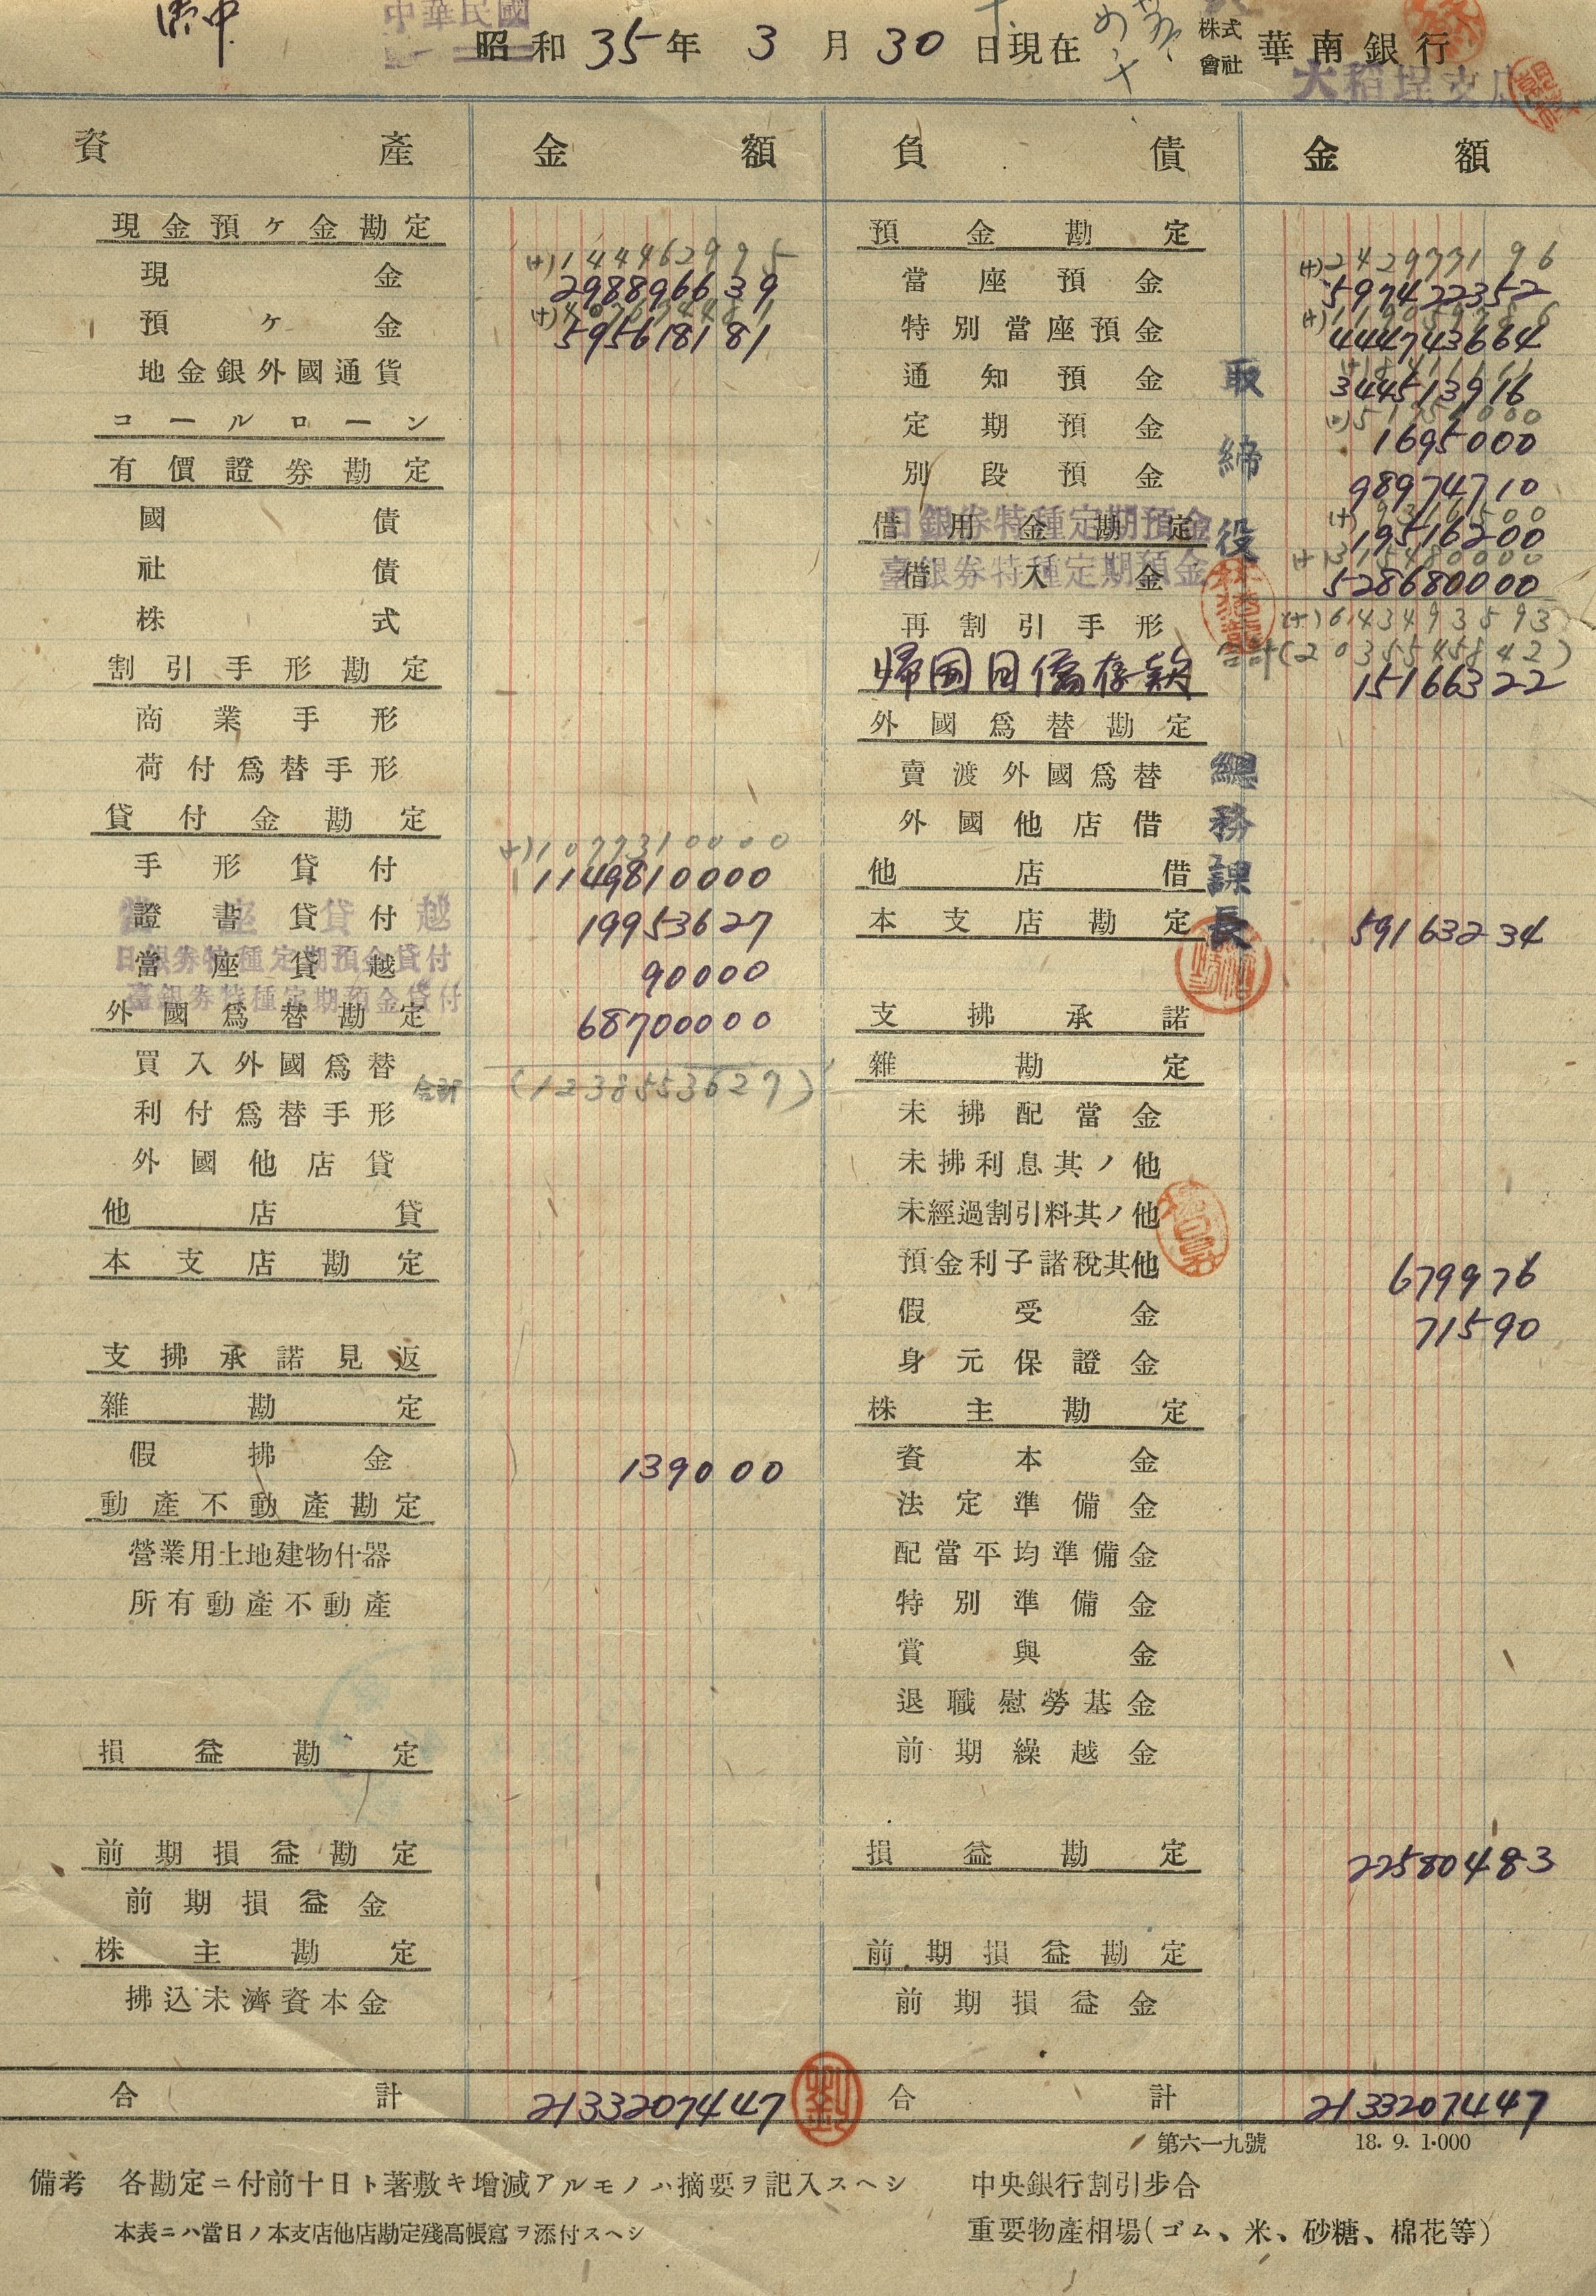 中華民國
昭和35年3月30日現在 株式會社 華南銀行
大稻埕支店
資產 金額 負債 金額
現金預ケ金勘定
(+)144462995
現金 298896639
預ケ金 595618181
地金銀外國通貨
コールローン
有價證券勘定
國債
社債
株式
割引手形勘定
商業手形
荷付爲替手形
貸付金勘定
(+)1077310000
手形貸付 1149810000
證書貸付 19953627
當座貸越
日銀券特種定期預金貸付
當座貸越 90000
臺銀券特種定期預金貸付
外國爲替勘定 68700000
買入外國爲替
合計 (1238553627)
利付爲替手形
外國他店貸
他店貸
本支店勘定
支拂承諾見返
雜勘定
假拂金 139000
動產不動產勘定
營業用土地建物什器
所有動產不動產
損益勘定
前期損益勘定
前期損益金
株主勘定
拂込未濟資本金
合計 2133207447
預金勘定
(+)242973196
當座預金 597422352
特別當座預金 444743664
通知預金 344513916
定期預金 1695000
別段預金 98974710
借用金勘定 19516200
日銀券特種定期預金
(+)315480000
借入金 528680000
臺銀券特種定期預金
再割引手形 (+)643493593
合計(2035545842)
帰国日僑存款 15166322
外國爲替勘定
賣渡外國爲替
外國他店借
他店借
本支店勘定 59163234
支拂承諾
雜勘定
未拂配當金
未拂利息其ノ他
未經過割引料其ノ他
預金利子諸稅其他 679976
假受金 71590
身元保證金
株主勘定
資本金
法定準備金
配當平均準備金
特別準備金
賞與金
退職慰勞基金
前期繰越金
損益勘定 22580483
前期損益勘定
前期損益金
合計 2133207447
取締役
總務課長
第六一九號 18.9.1.000
備考 各勘定ニ付前十日ト著敷キ增減アルモノハ摘要ヲ記入スヘシ
本表ニハ當日ノ本支店他店勘定殘高帳寫ヲ添付スヘシ
中央銀行割引步合
重要物產相場(ゴム、米、砂糖、棉花等)